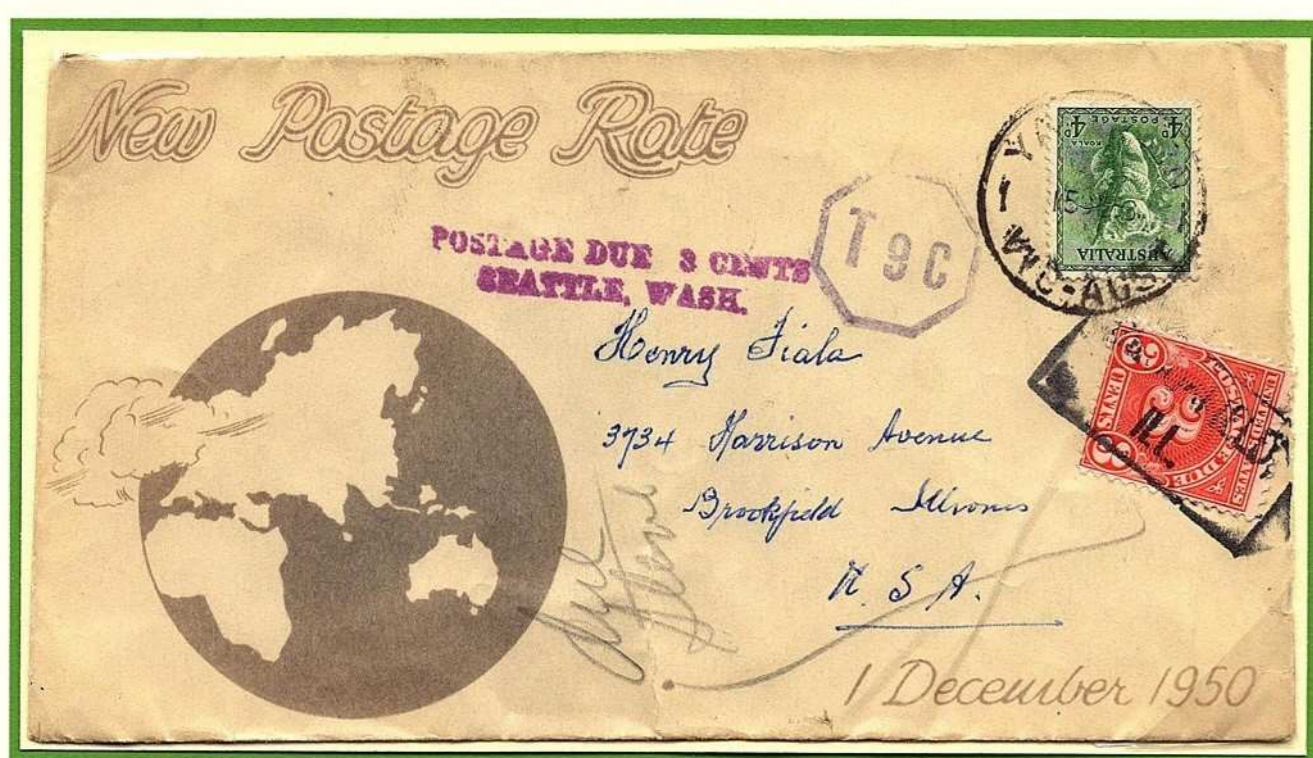 New Postage Rate
POSTAGE DUE 3 CENTS
SEATTLE, WASH.
T 9 C
4D POSTAGE 4D
KOALA
AUSTRALIA
VIC-AUST
Henry Fiala
3734 Harrison Avenue
Brookfield Illinois
U. S. A.
3 CENTS 3
POSTAGE DUE
ILL.
Due
Three
1 December 1950